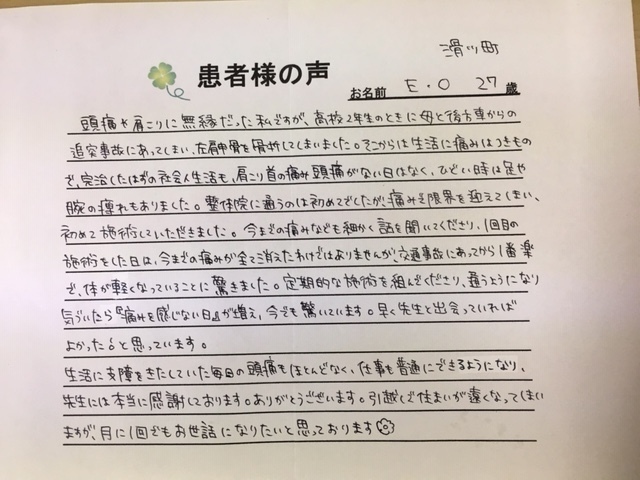 滑川町
患者様の声
お名前 E・O 27歳
頭痛や肩こりに無縁だった私ですが、高校2年生のときに母と後方車からの
追突事故にあってしまい、左肩甲骨を骨折してしまいました。そこからは生活に痛みはつきもの
で、完治したはずの社会人生活も、肩こり首の痛み頭痛がない日はなく、ひどい時は足や
腕の痺れもありました。整体院に通うのは初めてでしたが、痛みも限界を迎えてしまい、
初めて施術していただきました。今までの痛みなども細かく話を聞いてくださり、1回目の
施術をした日は、今までの痛みが全て消えたわけではありませんが、交通事故にあってから1番楽
で、体が軽くなっていることに驚きました。定期的な施術を組んでくださり、通うようになり
気づいたら『痛みを感じない日』が増え、今でも驚いています。早く先生と出会っていれば
よかったなと思っています。
生活に支障をきたしていた毎日の頭痛もほとんどなく、仕事も普通にできるようになり、
先生には本当に感謝しております。ありがとうございます。引越しで住まいが遠くなってしまい
ますが、月に1回でもお世話になりたいと思っております